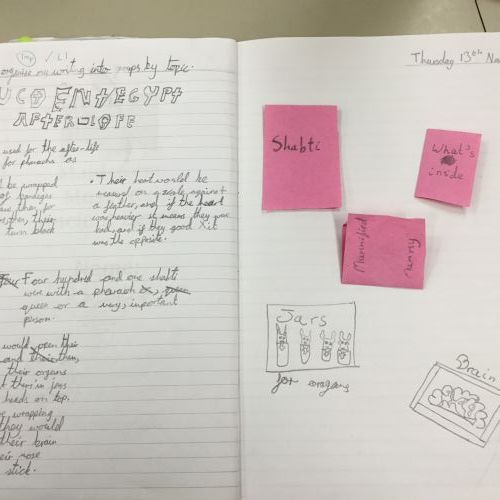 Imp / L1
organise my writing into groups by topic.
ENt EGYPt
AFtER-LIFE
used for the after-life
for pharaohs as
be wrapped
of bandages
their
turn black
• Their heart would be
on a scale, against
a feather, and if the heart
was heavier it means they were
bad, and if they good it
was the opposite.
Four hundred and one shabti
were with a pharaoh or,
queen or a very, important
person.
would open their
and then,
their organs
them in jars
heads on top.
wrapping
they would
their brain
their nose
stick.
Thursday 13th No
Shabti
What's
inside
Mummified
mummy
Jars
for organs
Brain